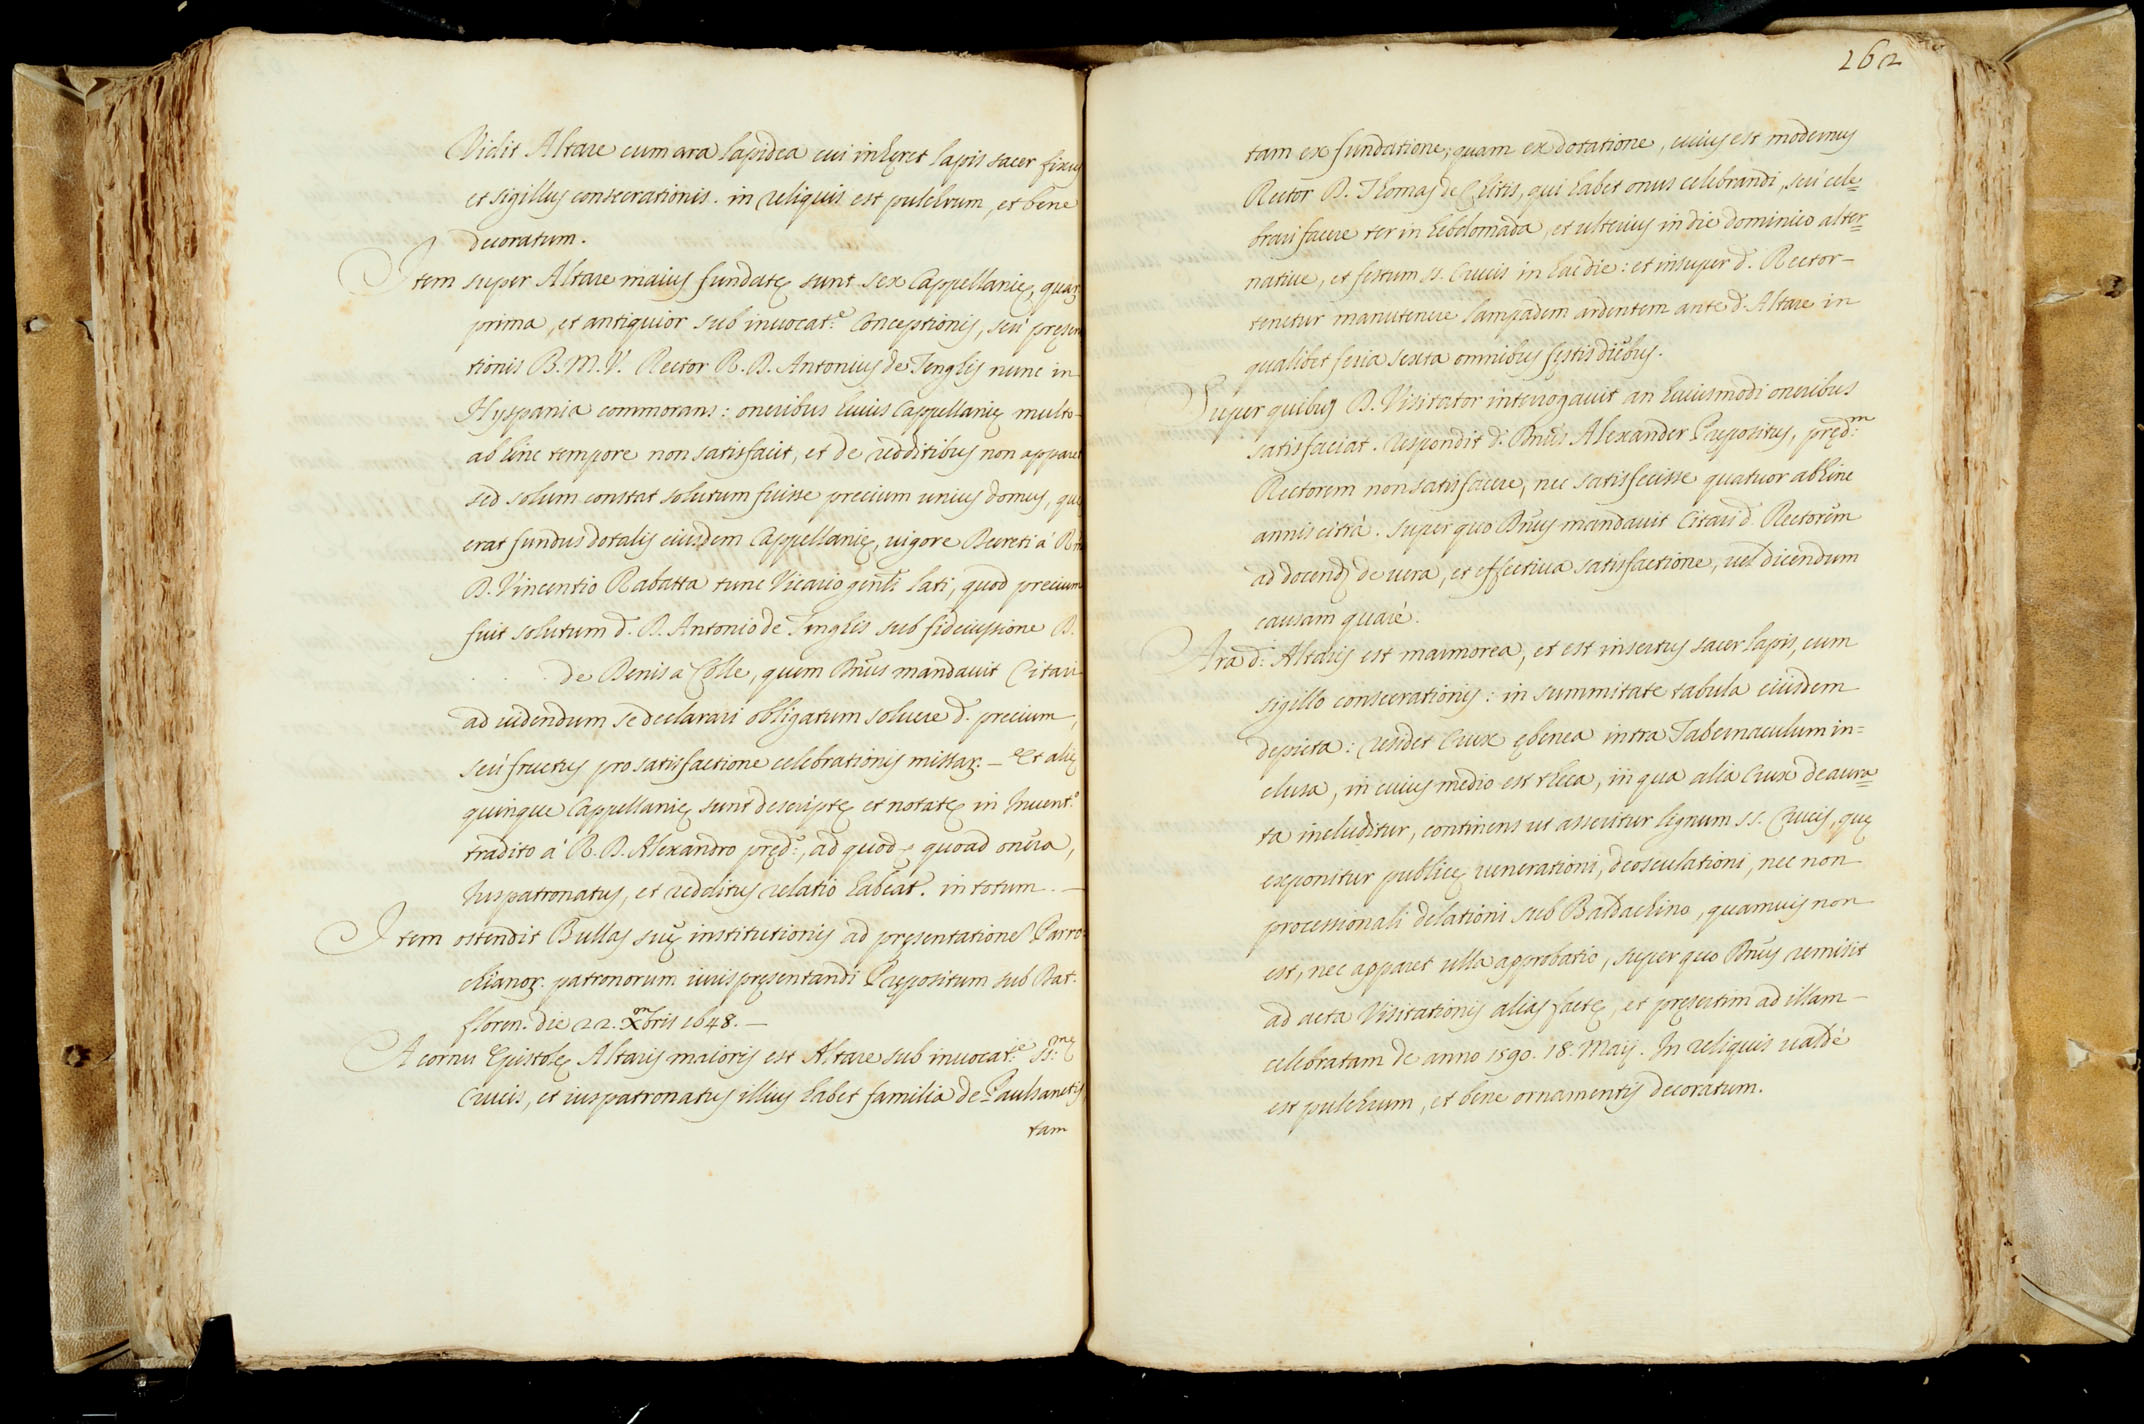 Vidit Altare cum ara lapidea cui inhęret lapis sacer fixus
et sigillus consecrationis. in reliquis est pulchrum, et bene
decoratum.
Item super Altare maius fundatę sunt sex Cappellanię, quar.
prima, et antiquior sub inuocat.e Conceptionis, seu pręsen
tionis B. M. V. Rector R. D. Antonius de Tenghis nunc in
Hyspania commorans: oneribus huius Cappellanię multo-
ab hinc tempore non satisfacit, et de redditibus non apparet
sed solum constat solutum fuisse precium unius domus, quę
erat fundus dotalis eiusdem Cappellanię, uigore Decreti à R.
D. Vincentio Rabatta tunc Vicario genli lati, quod precium
fuit solutum d. D. Antonio de Tenghis sub fideiussione D.
de Benis a Colle, quem Dnus mandauit Citari
ad uidendum se declarari obligatum soluere d. precium,
seu fructus pro satisfactione celebrationis missar. - Et alię
quinque Cappellanię sunt descriptę et notatę in Inuent.o
tradito à R. D. Alexandro pręd.o, ad quod, quoad onera,
Iuspatronatus, et redditus relatio habeat. in totum. -
Item ostendit Bullas suę institutionis ad pręsentatione Parro=
chianor. patronorum iuris pręsentandi Prępositum sub Dat.
floren. die 22. Xbris 1648. -
A cornu Epistolę Altaris maioris est Altare sub inuocat.e SS.mę
Crucis, et iuspatronatus illius habet familia de Paulsanctis
tam
162
tam ex fundatione, quam ex dotatione, cuius est modernus
Rector D. Thomas de Chitis, qui habet onus celebrandi, seu cele=
brari facere ter in hebdomada, et ulterius in die dominico alter=
natiue, et festum SS. Crucis in hac die: et insuper d. Rector-
tenetur manutenere lampadem ardentem ante d. Altare in
qualibet feria sexta omnibus festis diebus.
Super quibus D. Visitator interrogauit an huiusmodi oneribus
satisfaciat. respondit d. Dnus Alexander Prępositus, pręd.m
Rectorem non satisfacere, nec satisfecisse quatuor ab hinc
annis citrà. super quo Dnus mandauit Citari d. Rectorem
ad docend. de uera, et effectiua satisfactione, uel dicendum
causam quare.
Ara d. Altaris est marmorea, et est insertus sacer lapis, cum
sigillo consecrationis: in summitate tabula eiusdem
depicta: residet Crux ębenea intra Tabernaculum in=
clusa, in cuius medio est theca, in qua alia Crux deaura=
ta includitur, continens ut asseritur lignum SS. Crucis, quę
exponitur publicę uenerationi, deosculationi, nec non
processionali delationi sub Baldachino, quamuis non
est, nec apparet ulla approbatio, super quo Dnus remisit
ad acta Visitationis alias factę, et pręsertim ad illam-
celebratam de anno 1590. 18. Maij. In reliquis ualdè
est pulchrum, et bene ornamentis decoratum.